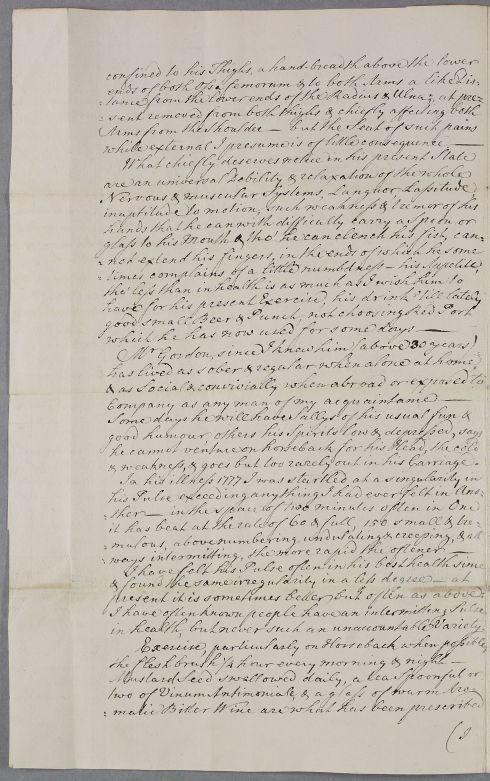 confined to his Thighs, a hand-breadth above the lower
ends of both Ossa femorum & to both Arms a like Dis-
-tance from the lower ends of the Radius & Ulna; at pre-
-sent removed from both thighs & chiefly affecting both
Arms from the Shoulder — but the Seat of such pains
while external I presume is of little consequence. —
What chiefly deserves notice in his present State
are an universal Debility & relaxation of the whole
Nervous & muscular Systems, Languor Lassitude
inaptitude to motion, such weakness & tremor of his
hands that he can with difficulty carry a spoon or
glass to his Mouth & tho' he can clench his fist, can-
-not extend his fingers, in the ends of which he some-
-times complains of a little numbdness — his Appetite,
tho' less than in health is as much as I wish him to
have for his present Exercise, his drink till lately
good small Beer & Punch, not choosing Red Port
which he has now used for some days —
Mr. Gordon, since I knew him (above 30 years)
has lived as sober & regular when alone at home
& as Social & convivially when abroad or exposed to
Company as any man of my acquaintance —
Some days he will have Sallys of his usual fun &
good humour, others his Spirits low & depressed, says
he cannot venture on horseback for his Head, the cold
& weakness, & goes but too rarely out in his Carriage.
In his illness 1777 I was startled at a singularity in
his Pulse exceeding anything I had ever felt in Ano-
-ther — in the space of two minutes often in One
it has beat at the rate of 60 & full, 150 small & tre-
-mulous, above numbering, undulating & creeping, & all
ways intermitting, the more rapid the oftener —
I have felt his Pulse often in his best health since
& found the same irregularity in a less degree — at
present it is sometimes better but often as above.
I have often known people have an intermitting Pulse
in health, but never such an unaccountable Variety.
Exercise, particularly on Horseback when possible,
the flesh brush ¼ hour every morning & night —
Mustard Seed swallowed daily, a tea Spoonful or
two of Vinum Antimoniale, & a glass of warm Aro-
-matic Bitter Wine are what has been prescribed
(I